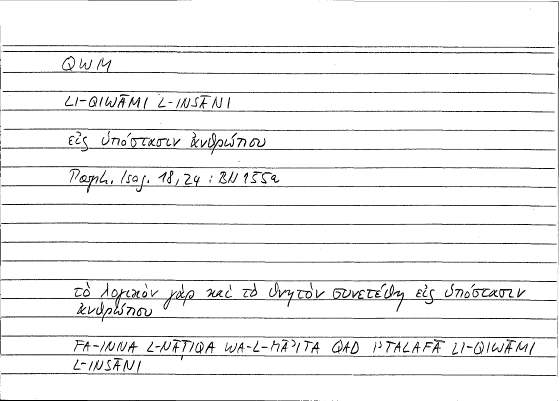 QWM
LI-QIWĀMI L-INSĀNI
εἰς ὑπόστασιν ἀνθρώπου
Porph. Isag. 18,24 : BN 155a
τὸ λογικὸν γὰρ καὶ τὸ θνητὸν συνετέθη εἰς ὑπόστασιν
ἀνθρώπου
FA-INNA L-NĀṬIQA WA-L-MĀʾITA QAD IʾTALAFĀ LI-QIWĀMI
L-INSĀNI